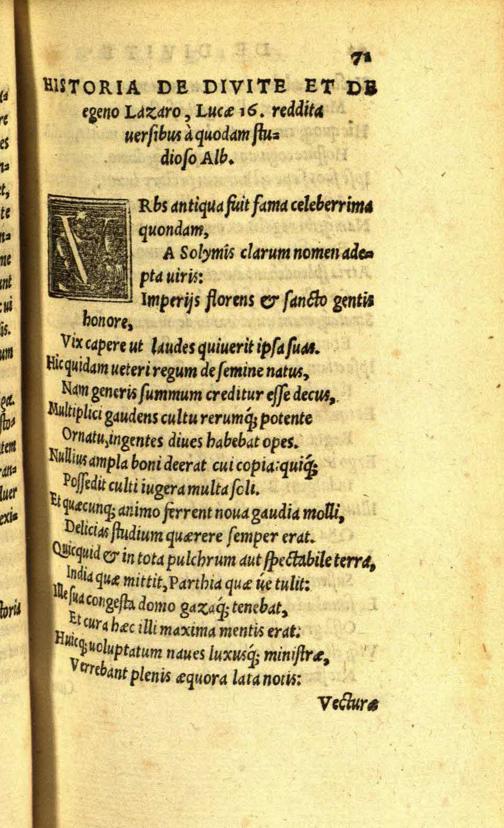 71
HISTORIA DE DIVITE ET DE
egeno Lazaro, Lucæ 16. reddita
uersibus à quodam stu=
dioso Alb.
VRbs antiqua fuit fama celeberrima
quondam,
A Solymis clarum nomen ade=
pta uiris:
Imperijs florens & sancto gentis
honore,
Vix capere ut laudes quiuerit ipsa suas.
Hic quidam ueteri regum de semine natus,
Nam generis summum creditur esse decus,
Multiplici gaudens cultu rerumq; potente
Ornatu, ingentes diues habebat opes.
Nullius ampla boni deerat cui copia: quiq;
Possedit culti iugera multa soli.
Et quæcunq; animo ferrent noua gaudia molli,
Delicias studium quærere semper erat.
Quicquid & in tota pulchrum aut spectabile terra,
India quæ mittit, Parthia quæ ue tulit:
Ille sua congesta domo gazaq; tenebat,
Et cura hæc illi maxima mentis erat:
Huicq; uoluptatum naues luxusq; ministræ,
Verrebant plenis æquora lata notis:
Vecturæ